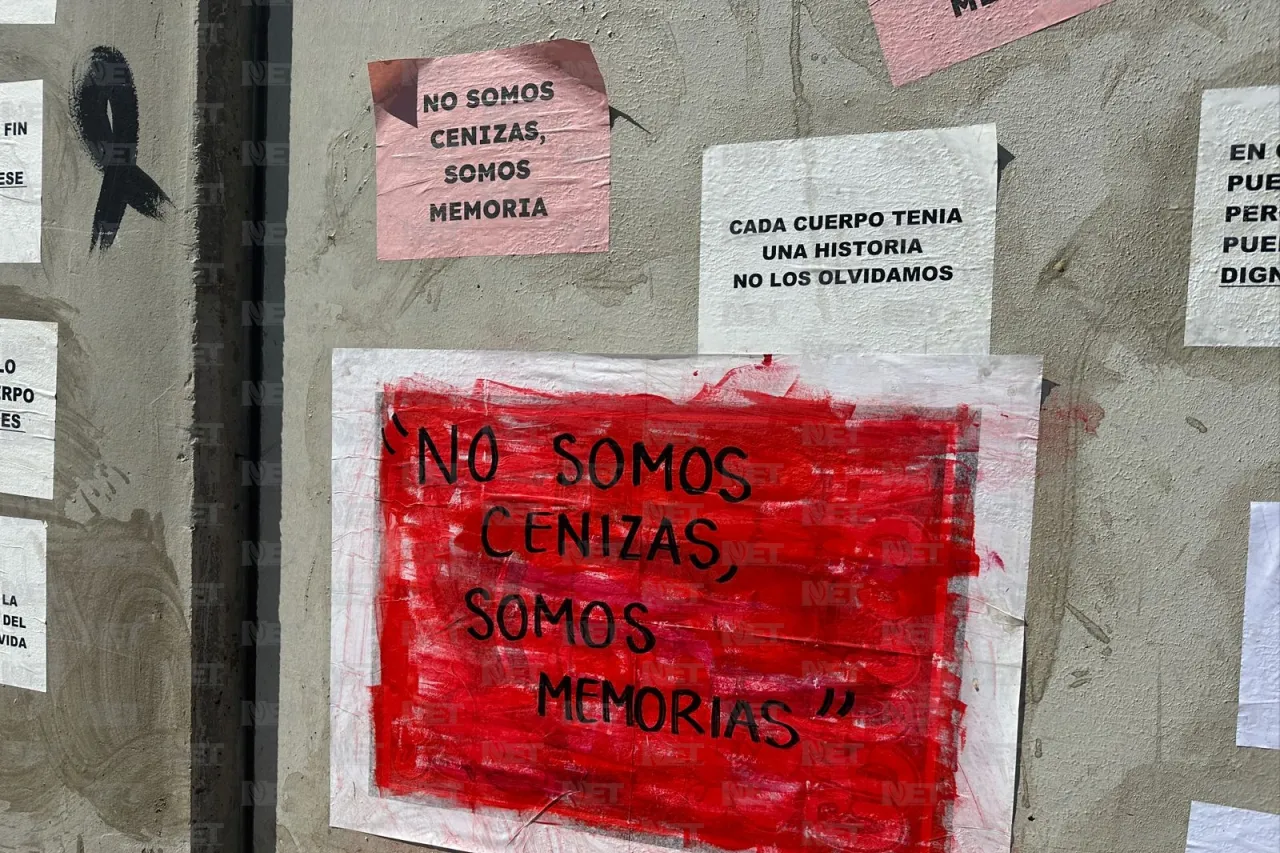 FIN
ESE
NO SOMOS
CENIZAS,
SOMOS
MEMORIA
CADA CUERPO TENIA
UNA HISTORIA
NO LOS OLVIDAMOS
EN
PUE
PER
PUE
DIGN
LO
RPO
ES
LA
DEL
VIDA
"NO SOMOS
CENIZAS,
SOMOS
MEMORIAS"
NET